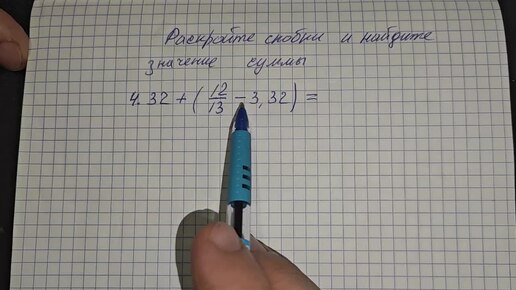 Раскройте скобки и найдите
значение суммы
4.32 + (12/13 - 3,32) =